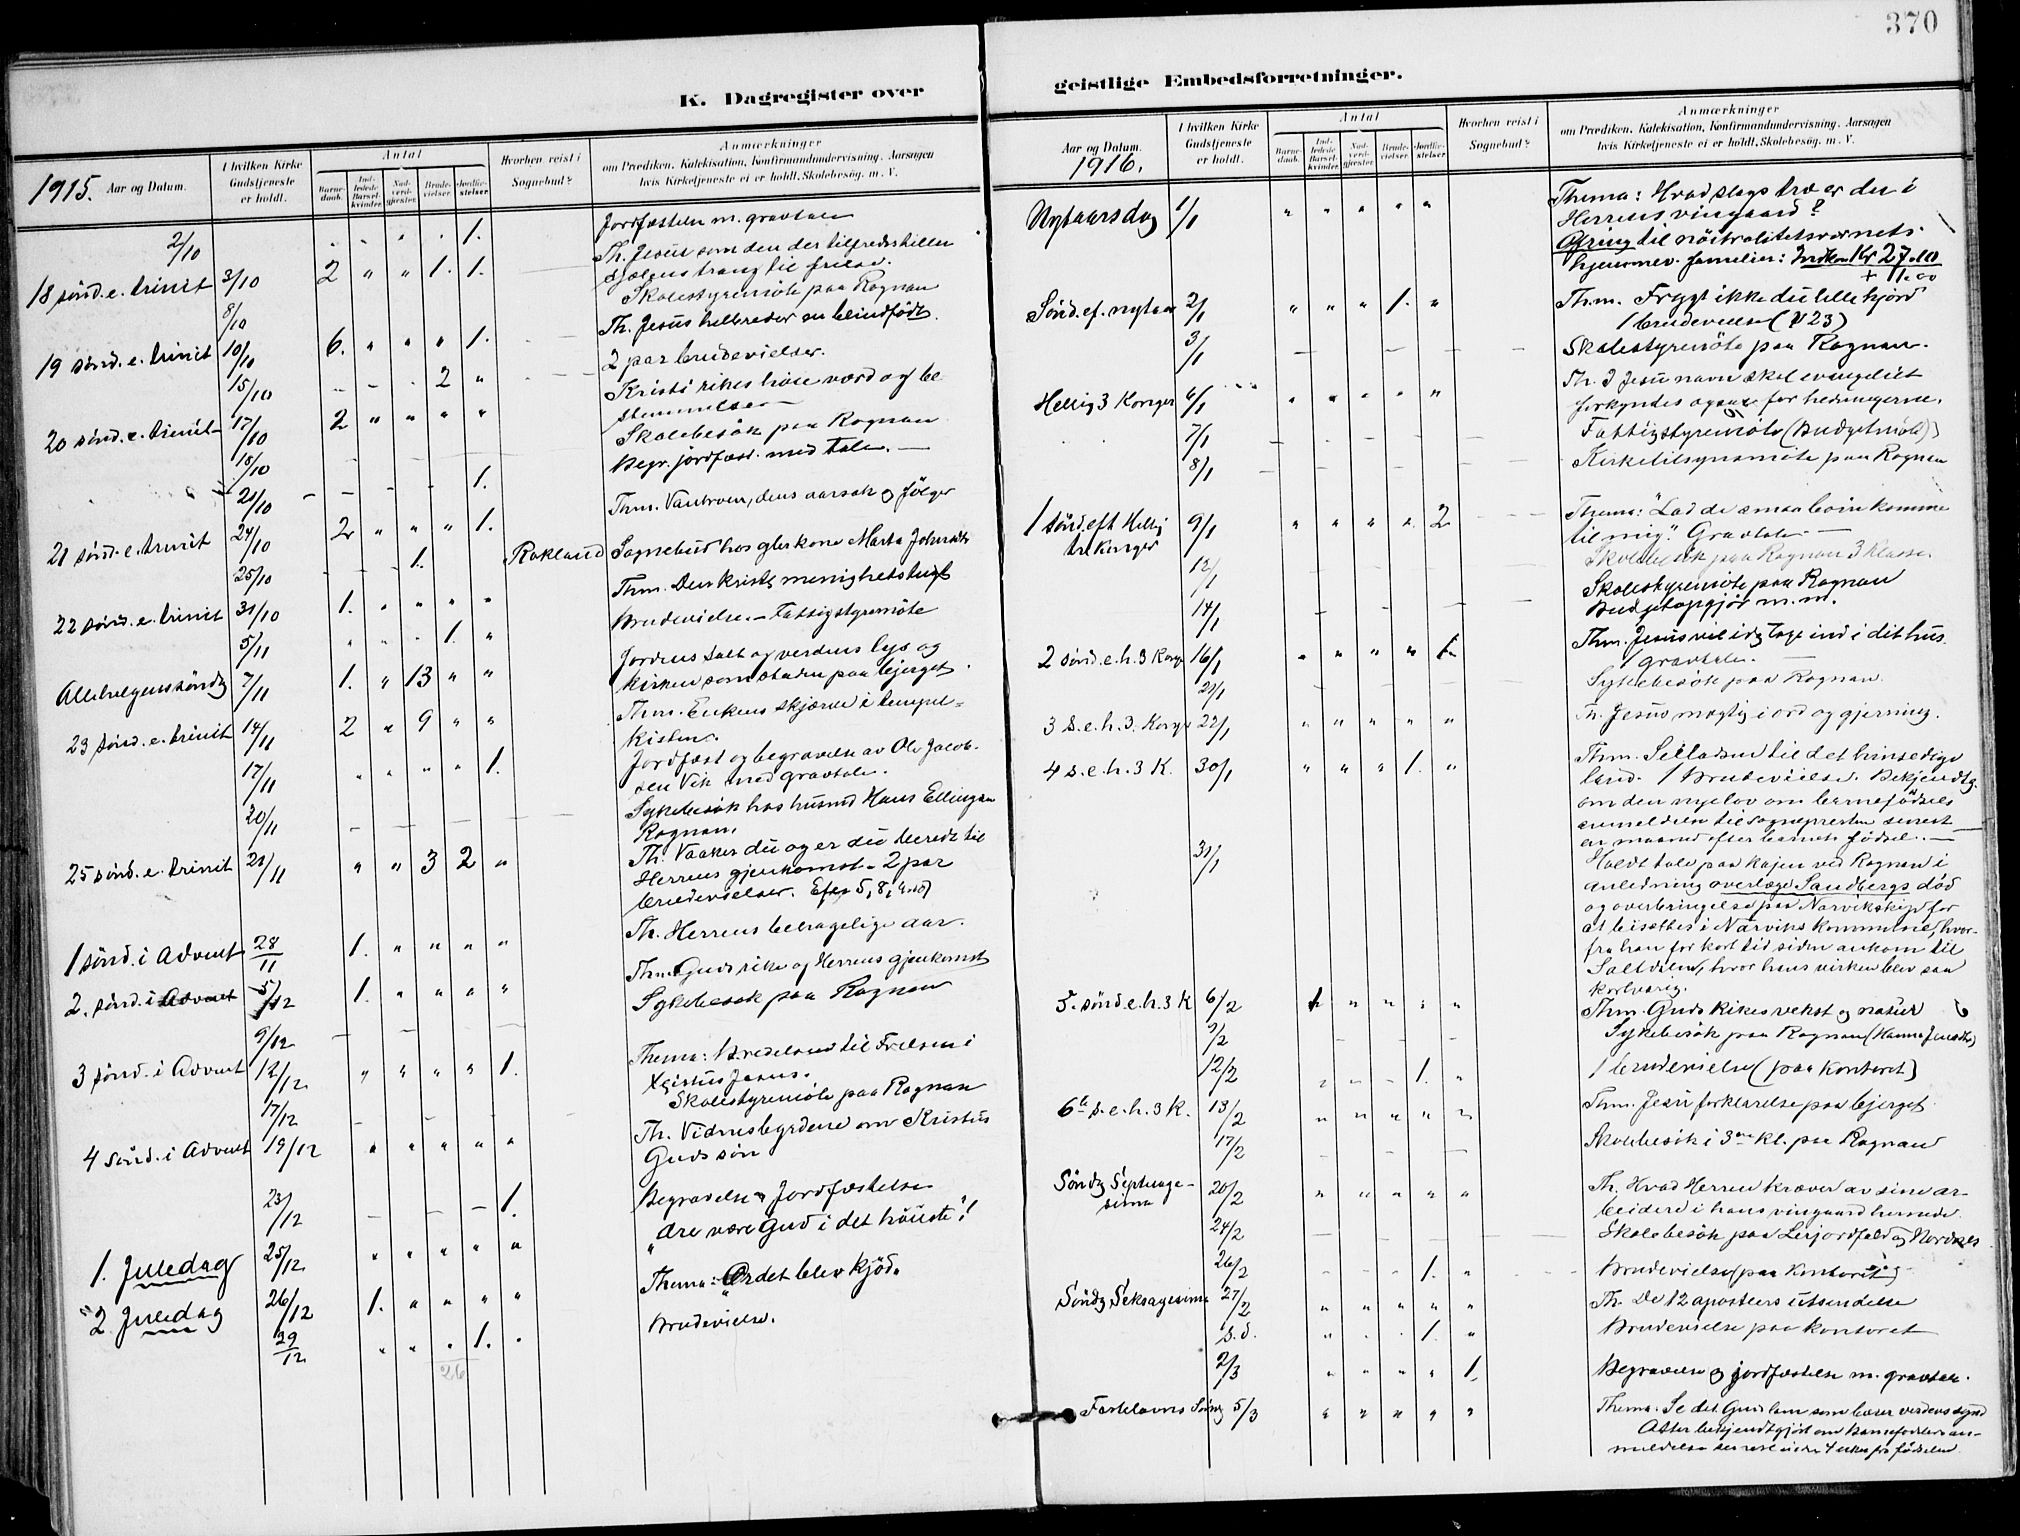 370
K. Dagregister over
geistlige Embedsforretninger.
1915. Aar og Datum.
I hvilken Kirke Gudstjeneste er holdt.
Antal
Barnedaab.
Indledede Barselkvinder.
Nadverdgjester.
Brudevielser.
Jordfæstelser.
Hvorhen reist i Sognebud?
Anmærkninger
om Prædiken, Katekisation, Konfirmandundervisning, Aarsagen
hvis Kirketjeneste ei er holdt, Skolebesøg, m. V.
2/10 1. Jordfæstelse m. gravtale
18 sønd. e. trinit 3/10 2 " " 1. 1. Th. Jesus som den der tilfredsstiller
sjælens trang til frelse.
8/10 Skolestyremöte paa Rognan
19 sønd. e. trinit 10/10 6. " " " 1. Th. Jesus helbreder en blindfödt.
15/10 2 " 2 par brudevielser.
20 sønd. e. trinit 17/10 2 " " " " Kristi rikes höie værd og be-
stemmelser
18/10 Skolebesök paa Rognan
21/10 1. Begr. jordfæst. med tale.
21 sønd. e. trinit 24/10 2 " " " 1. Thm. Vantroen, dens aarsak og fölger
25/10 1. Rokland Sognebud hos
22 sønd. e. trinit 31/10 1. " " " " Thm. Den kristne menighetstugt
5/11 " " 1. " Brudevielse. – Fattigstyremöte
Allehelgenssöndag 7/11 1. " 13 " " Jordens salt og verdens lys og
kirken som staden paa bjerget.
23 sønd. e. trinit 14/11 2 " 9 " " Thm. Enkens skjærv i tempel=
kisten.
17/11 " " " " 1. Jordfæst og begravelse av Ole Jacob-
sen Vik med gravtale.
20/11 Sykebesök hos husmd Hans Ellingsen
Rognan.
25 sønd. e. trinit 21/11 " " 3 2 " Th. Vaaker du og er du beredt til
Herrens gjenkomst – 2 par
brudevielser.
1 sønd. i Advent 28/11 1. " " " " Th. Herrens behagelige aar.
2. sønd. i Advent 5/12 1. " " " " Thm. Guds rike og Herrens gjenkomst
9/12 Sykebesøk paa Rognan
3 sønd. i Advent 12/12 " " " " 1. Thema: Bredeland til Frelsen i
Kristus Jesus.
17/12 Skolestyremöte paa Rognan
4 sönd. i Advent 19/12 " " " " " Th. Vidnesbyrdene om Kristus
Guds sön
23/12 1. Begravelse og Jordfæstelse
1. Juledag 25/12 " " " " " "Ære være Gud i det höieste"!
2. Juledag 26/12 1. " " " " Thema: Ordet blev kjöd.
29/12 " " . 1. . Brudevielse.
26
Aar og Datum.
1916.
I hvilken Kirke Gudstjeneste er holdt.
Antal
Barnedaab.
Indledede Barselkvinder.
Nadverdgjester.
Brudevielser.
Jordfæstelser.
Hvorhen reist i Sognebud?
Anmærkninger
om Prædiken, Katekisation, Konfirmandundervisning, Aarsagen
hvis Kirketjeneste ei er holdt, Skolebesøg, m. V.
Nytaarsdag 1/1 " " " " " Thema: Hvad slags træ er du i
Herrens vingaard?
Ofring til nöitralitetsvernets
familier: Indkom Kr 27.10
+ 1.00
Sønd. ef. nytaar 2/1 " " " 1. " Thm. Frygt ikke du lille hjord
1 brudevielse (V 23)
3/1 Skolestyremöte paa Rognan.
Hellig 3 Konger 6/1 " " " " " Th. I Jesu navn skal evangeliet
forkyndes ogsaa for hedningerne.
7/1 Fattigstyremöte (Budgetmöte)
8/1 Kirketilsynsmöte paa Rognan
1 sønd. eft Hellig tre Konger 9/1 " " " " 2 Thema: "Lad de smaa börn komme
til mig". Gravtale
12/1 Skolebesök paa Rognan 3 Klasse.
14/1 Skolestyremöte paa Rognan
Budgetopgjör m. m.
2 sønd. e. h. 3 Konger 16/1 " " " " 1. Thm. Jesus vil idag tage ind i dit hus.
1 gravtale.
21/1 Sykebesök paa Rognan.
3 s. e. h. 3. Konger 23/1 " " " " " Th. Jesus mægtig i ord og gjerning.
4 s. e. h. 3 K. 30/1 " " " 1. " Thm. Seiladsen til det hinsidige
land. 1 Brudevielse. Bekjendtg.
om den nye lov om barnefödsels
anmeldelse til sogneprest senest
en maaned efter barnets födsel. –
31/1 Holdt tale paa kajen ved Rognan i
anledning overlæge Sandbergs död
og overbringelse paa Narvikskip for
at bisættes i Narviks kommune, hvor-
fra han for kort tid siden ankom til
Saltdalen, hvor hans virken blev saa
kortvarig.
5. sønd. e. h. 3 K 6/2 1 " " " " Thm. Guds Rikes vekst og natur
9/2 Sykebesök paa Rognan
12/2 1. " 1 brudevielse (paa kontoret)
6te s. e. h. 3 K. 13/2 " " " " " Thm. Jesu forklarelse paa bjerget.
17/2 Skolebesök i 3die kl. paa Rognan
Söndag Septuage-
sima 20/2 " " " " " Th. Hvad Herren kræver av sine ar-
beidere i hans vingaard hernede.
24/2 Skolebesök paa Leirjordfald og Nordnes
26/2 1. " Brudevielse (paa Kontoret)
Söndag Seksagesima 27/2 " " " " " Th. De 12 apostlers utsendelse
s. d. 1. " Brudevielse paa kontoret
2/3 " " " " 1. Begravelse og jordfæstelse m. gravtale.
Fastelavns Söndag 5/3 " " " " " Thema: Se det Guds lam som bærer verdens synd
Atter bekjendtgjort om Barnefödsels an-
meldelse senest inden 4 uker fra födselen